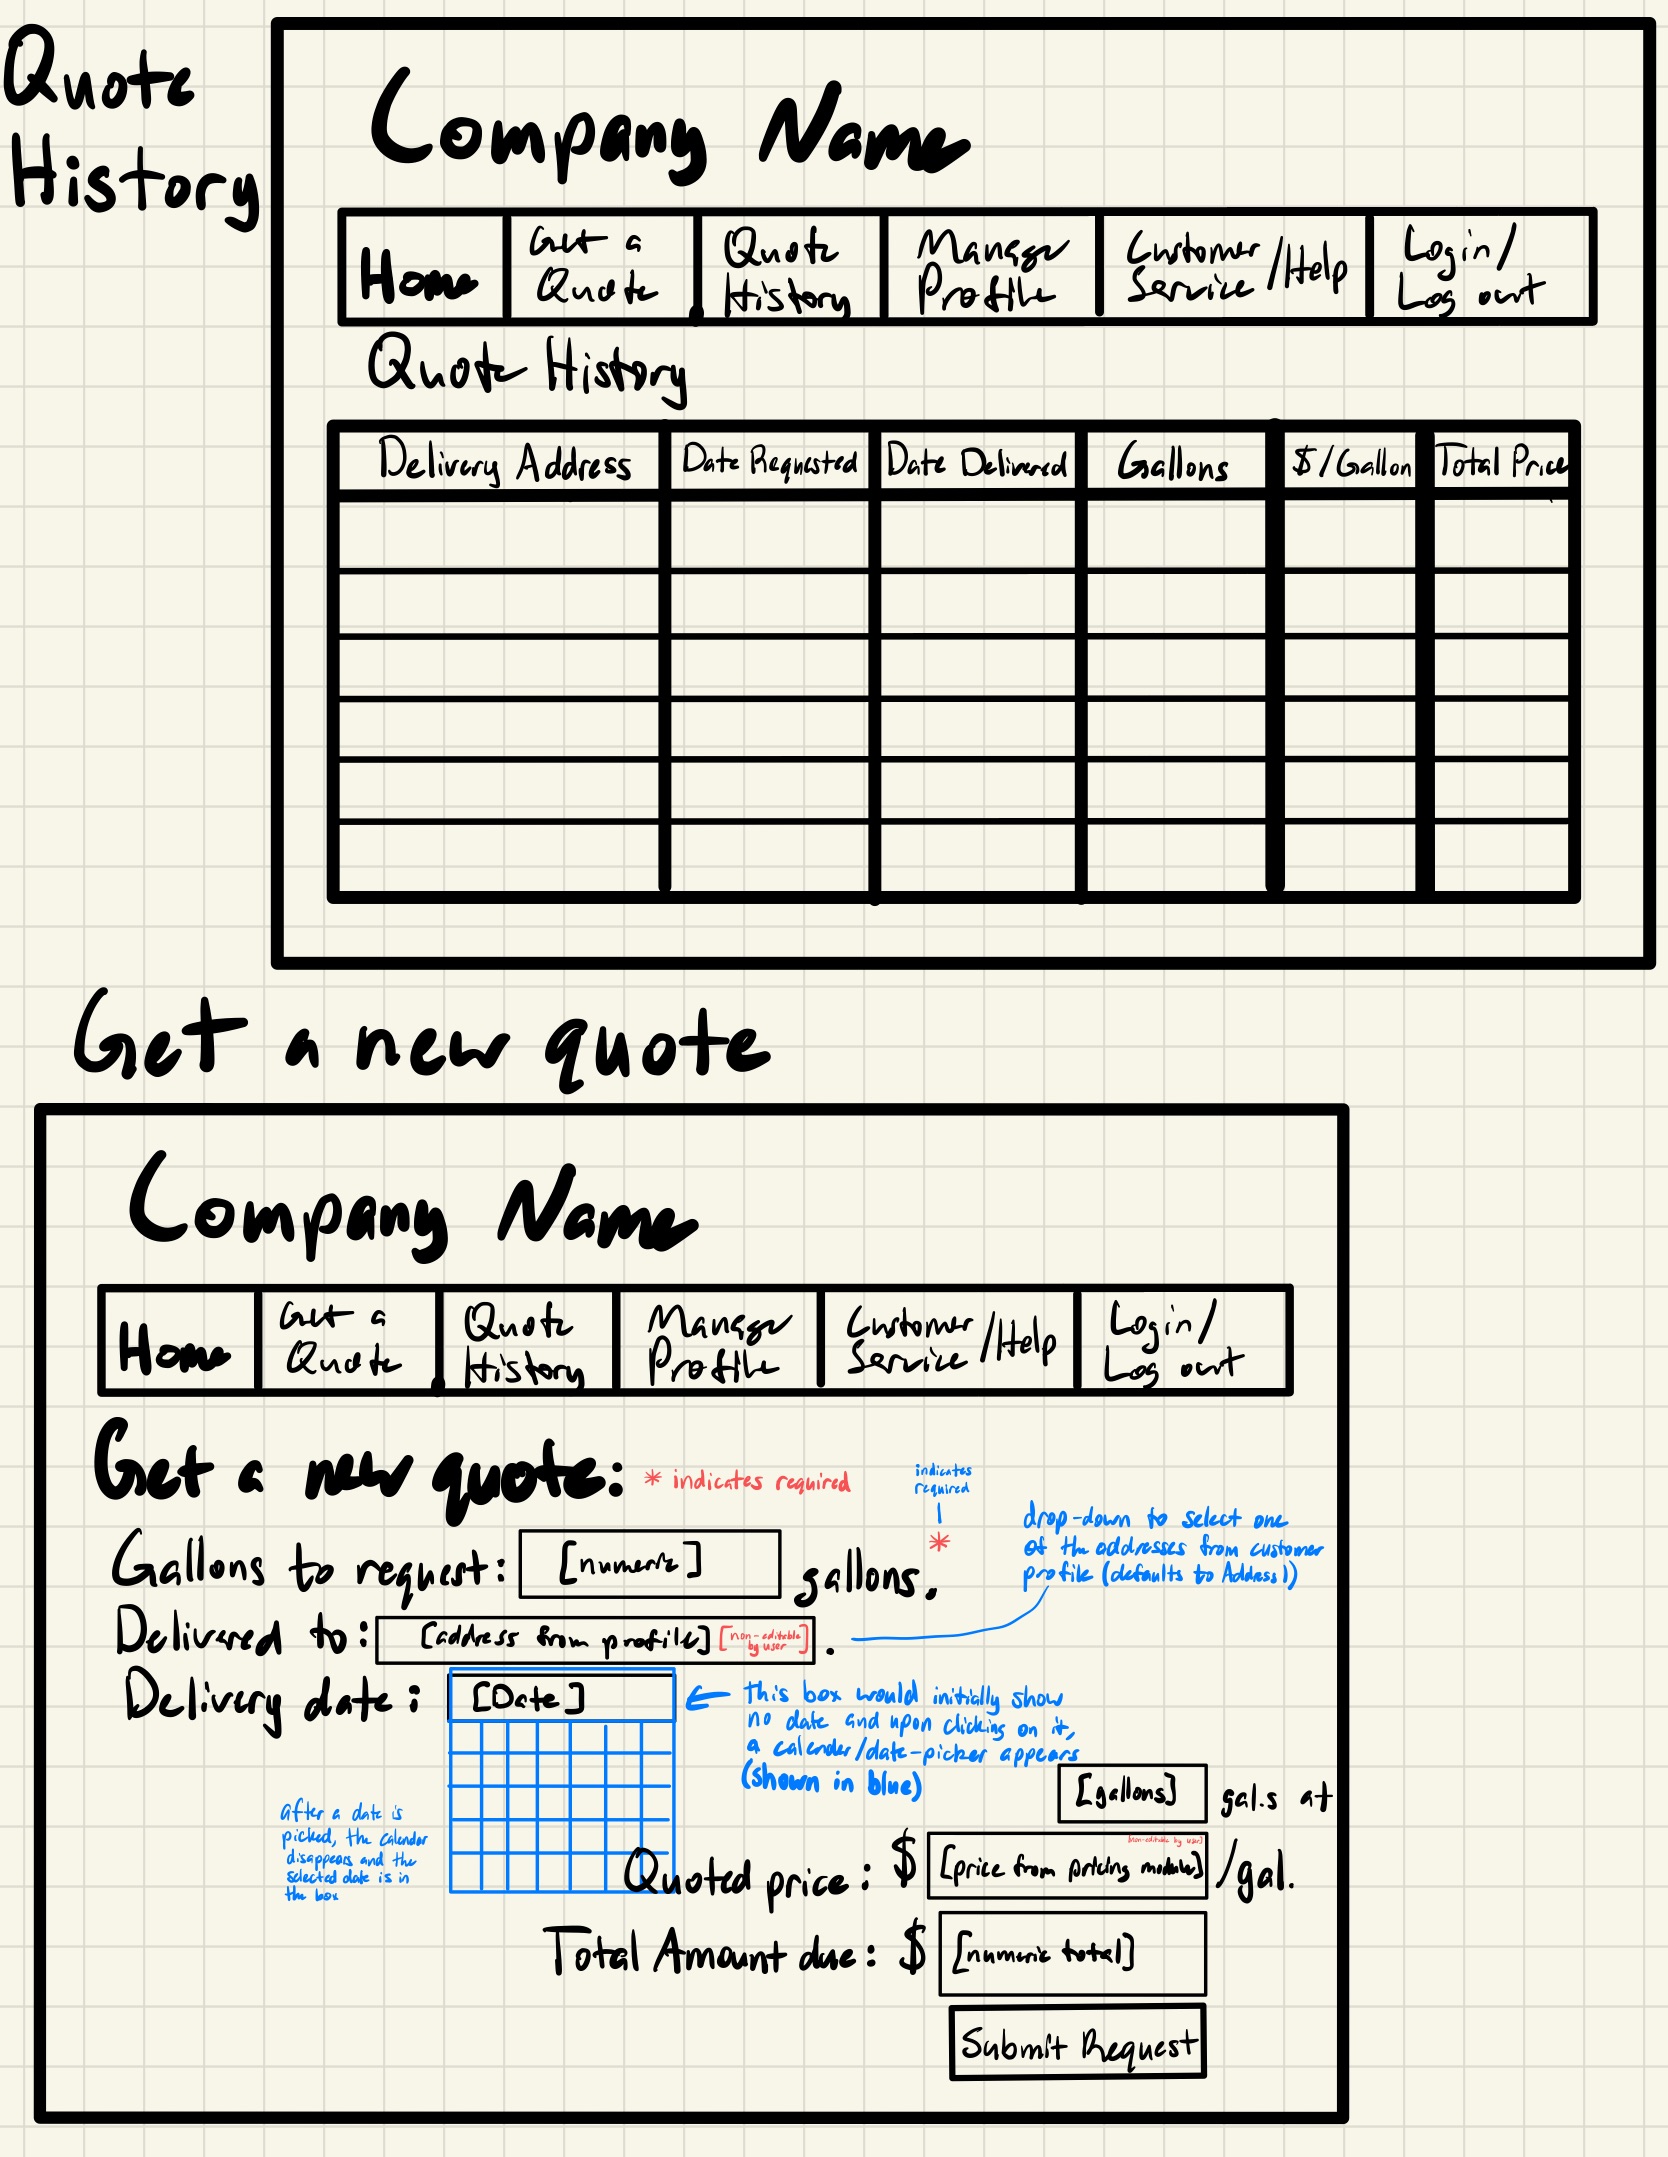 Quote
History
Company Name
Home
Get a
Quote
Quote
History
Manage
Profile
Customer
Service /Help
Login/
Log out
Quote History
Delivery Address
Date Requested
Date Delivered
Gallons
$/Gallon
Total Price
Get a new quote
Company Name
Home
Get a
Quote
Quote
History
Manage
Profile
Customer
Service /Help
Login/
Log out
Get a new quote: * indicates required
indicates
required
*
Gallons to request: [numeric] gallons.
drop-down to select one
of the addresses from customer
profile (defaults to Address 1)
Delivered to: [address from profile] [non-editable
by user] .
Delivery date: [Date]
this box would initially show
no date and upon clicking on it,
a calender/date-picker appears
(shown in blue)
after a date is
picked, the calender
disappears and the
selected date is in
the box
[gallons] gal.s at
[non-editable by user]
Quoted price: $ [price from pricing module] /gal.
Total Amount due: $ [numeric total]
Submit Request